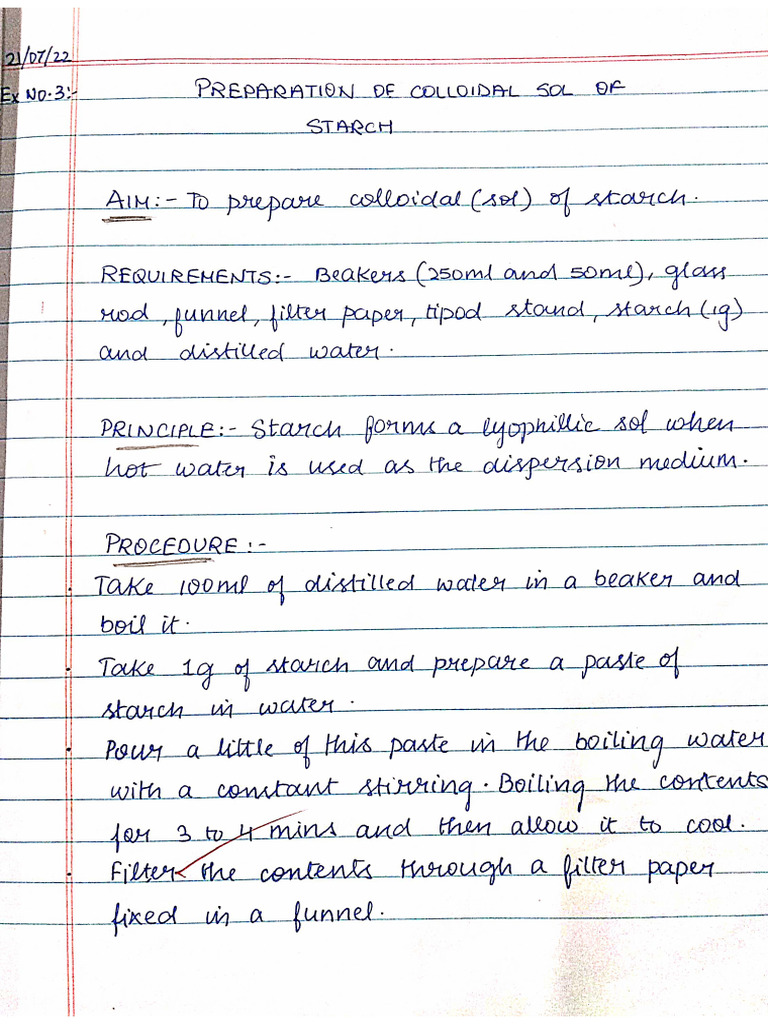 21/07/22
Ex No.3:- PREPARATION OF COLLOIDAL SOL OF
STARCH
AIM:- To prepare colloidal (sol) of starch.
REQUIREMENTS:- Beakers (250ml and 50ml), glass
rod, funnel, filter paper, tipod stand, starch (1g)
and distilled water.
PRINCIPLE:- Starch forms a lyophillic sol when
hot water is used as the dispersion medium.
PROCEDURE:-
• Take 100ml of distilled water in a beaker and
boil it.
• Take 1g of starch and prepare a paste of
starch in water.
• Pour a little of this paste in the boiling water
with a constant stirring. Boiling the contents
for 3 to 4 mins and then allow it to cool.
• Filter the contents through a filter paper
fixed in a funnel.